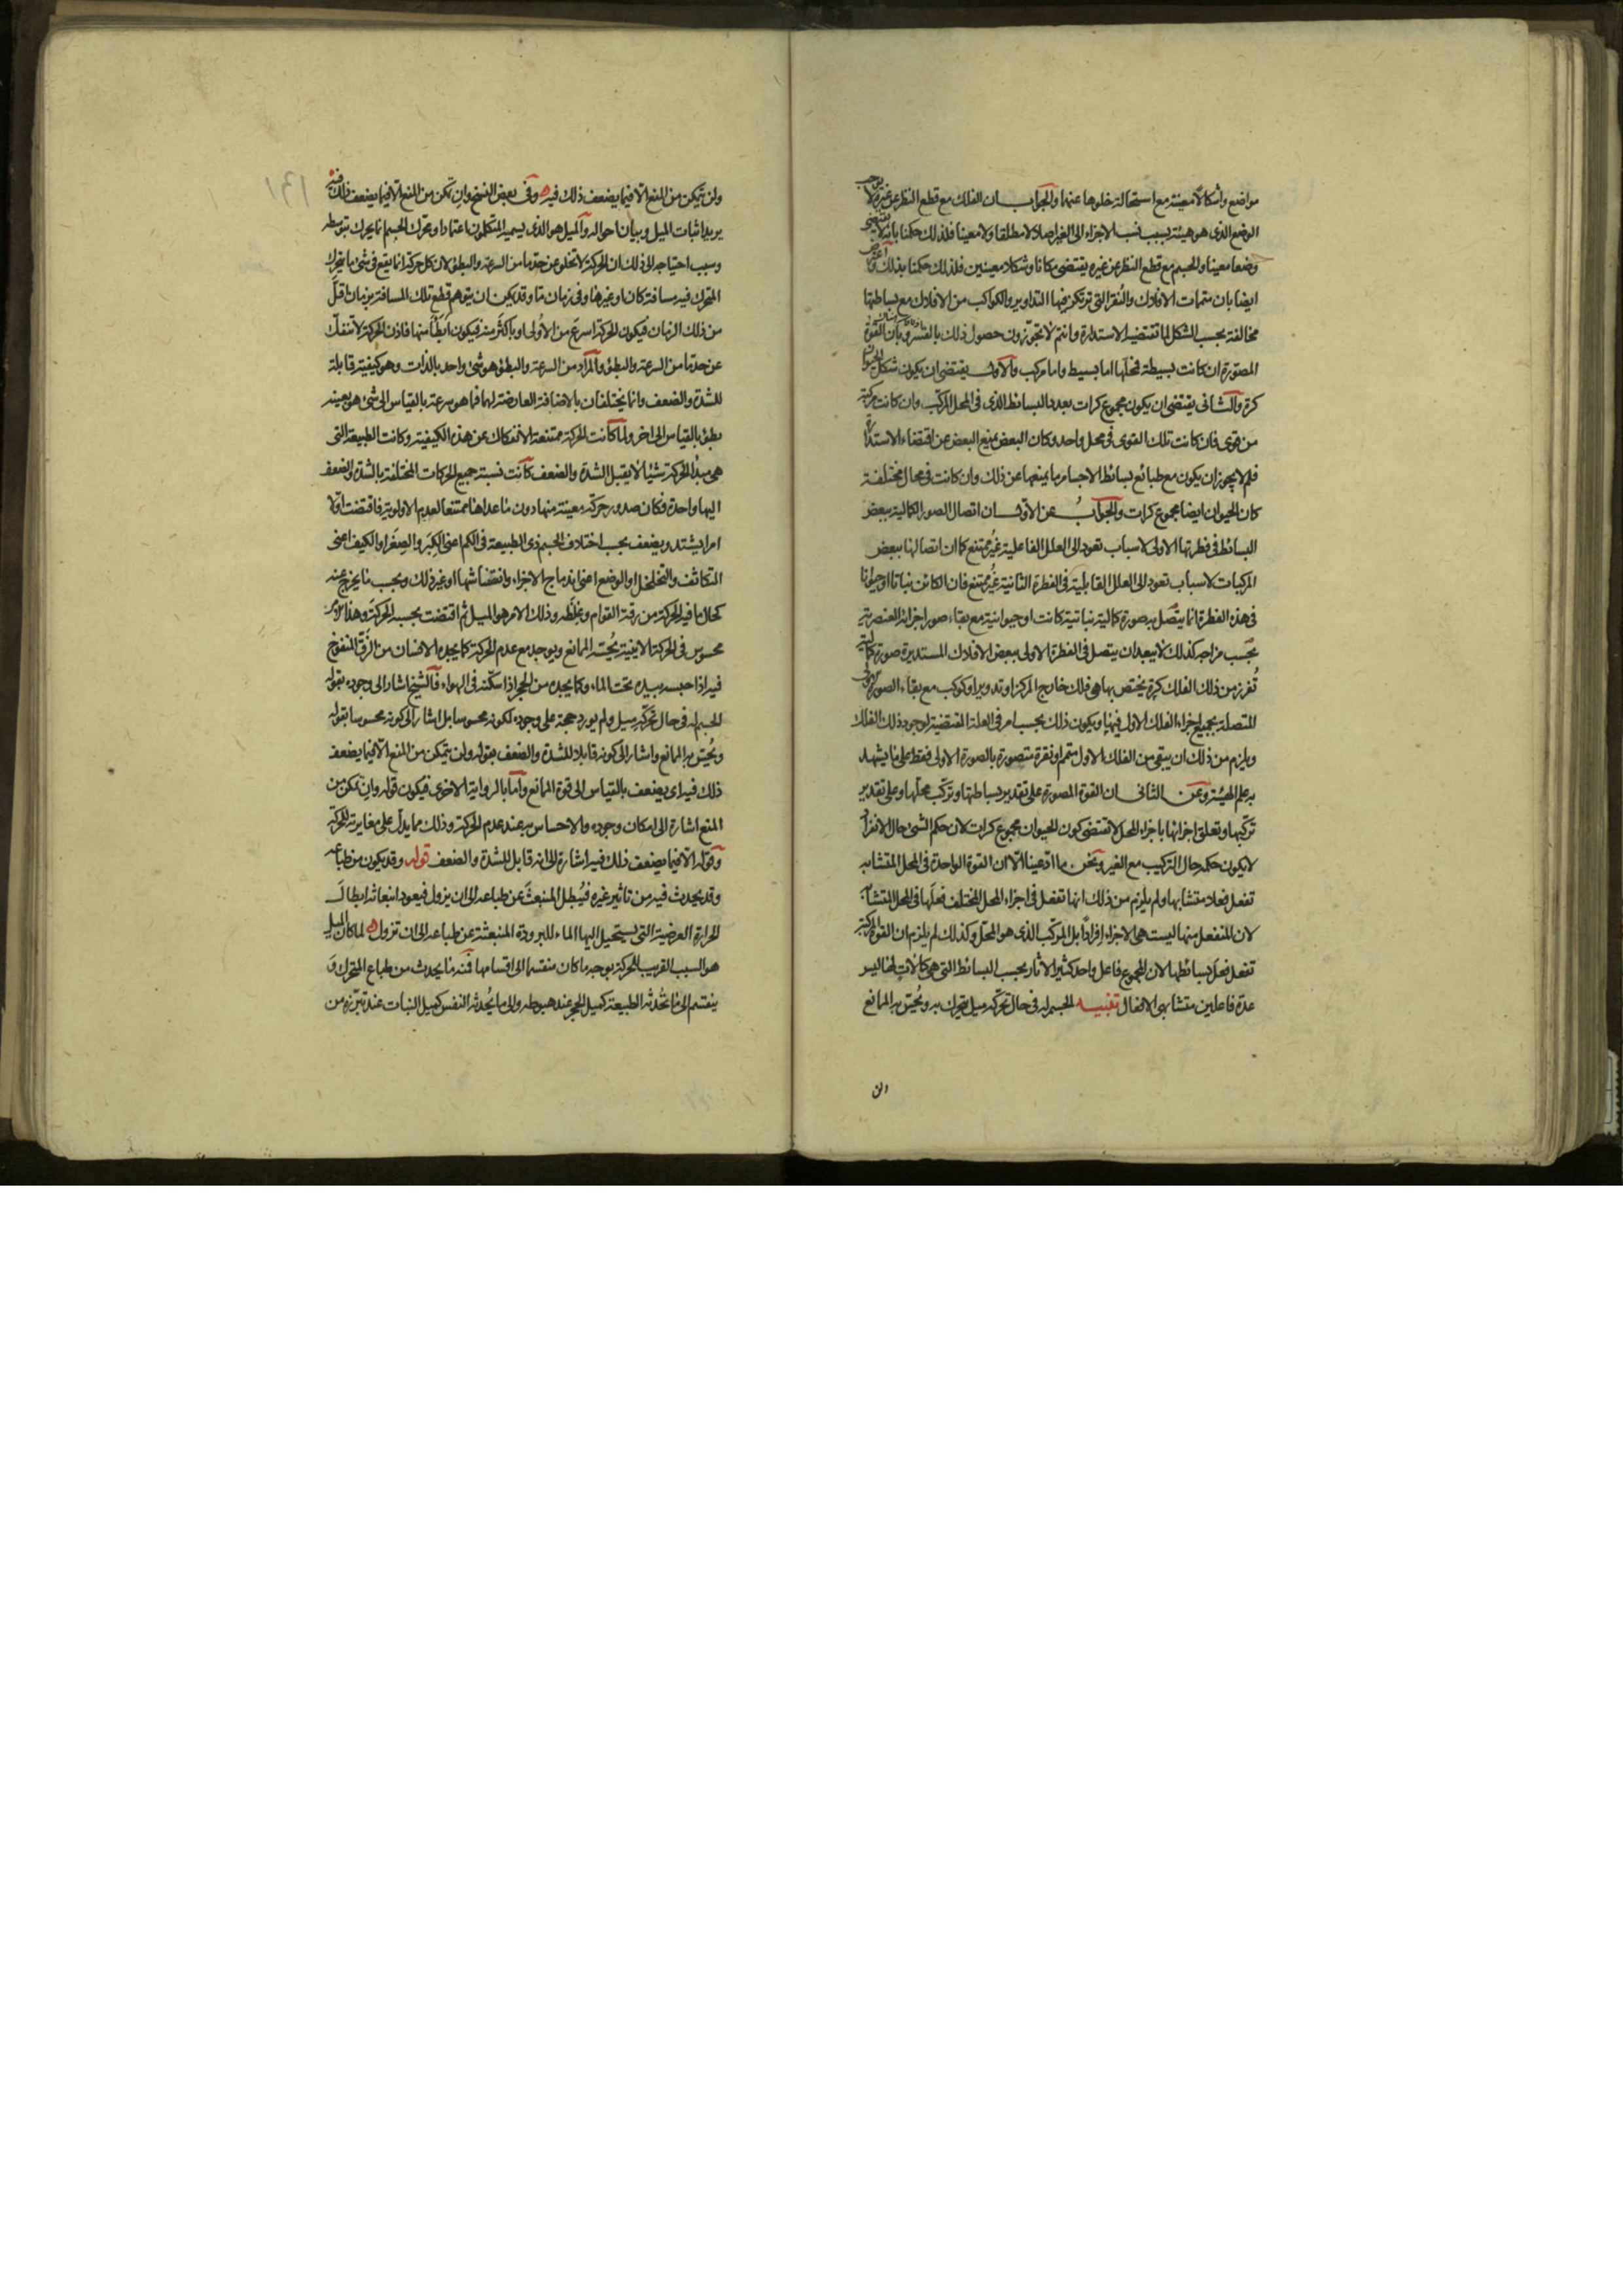 مواضع واشكالا معينة مع استحالة خلوها عنهما والجواب ان الفلك مع قطع النظر عن غيره لا يوجب
الوضع الذى هو هيئة بسبب نسب الاجزاء الى الغير اصلا لا مطلقا ولا معينا فلذلك حكمنا بانه لا يقتضى
وضعا معينا والجسم مع قطع النظر عن غيره يقتضى مكانا وشكلا معينين فلذلك حكمنا بذلك واعترض
ايضا بان متممات الافلاك والنقر التى تركز فيها التداوير والكواكب من الافلاك مع بساطتها
مخالفة بحسب الشكل لما تقتضيه الاستدارة وانتم لا تجوزون حصول ذلك بالقسر وبان القوة
المصورة ان كانت بسيطة فمحلها اما بسيط واما مركب والاول يقتضى ان يكون شكل الحيوان
كرة والثانى يقتضى ان يكون مجموع كرات بعدد البسائط الذى فى المحل المركب وان كانت مركبة
من قوى فان كانت تلك القوى فى محل واحد وكان البعض يمنع البعض عن اقتضاء الاستدارة
فلم لا يجوز ان يكون مع طبائع بسائط الاجسام ما يمنعها عن ذلك وان كانت فى محال مختلفة
كان الحيوان ايضا مجموع كرات والجواب عن الاول ان اتصال الصور الكمالية ببعض
البسائط فى فطرتها الاولى لاسباب تعود الى العلل الفاعلية غير ممتنع كما ان اتصالها ببعض
المركبات لاسباب تعود الى العلل القابلية فى الفطرة الثانية غير ممتنع فان الكائن نباتا او حيوانا
فى هذه الفطرة انما يتصل به صورة كمالية نباتية كانت او حيوانية مع بقاء صور اجزائه العنصرية
بحسب مزاجه كذلك لا يبعد ان يتصل فى الفطرة الاولى ببعض الافلاك المستديرة صورة كمالية
تفرز من ذلك الفلك كرة يختص بها هى فلك خارج المركز او تدوير او كوكب مع بقاء الصورة الاولى
المتصلة بجميع اجزاء الفلك الاول فيها ويكون ذلك بحسب امر فى العلة المقتضية لوجود ذلك الفلك
ويلزم من ذلك ان يبقى من الفلك الاول متمم او نقرة متصورة بالصورة الاولى فقط على ما يشهد
به علم الهيئة وعن الثانى ان القوة المصورة على تقدير بساطتها وتركب محلها وعلى تقدير
تركبها وتعلق اجزائها باجزاء المحل لا تقتضى كون الحيوان مجموع كرات لان حكم الشئ حال الانفراد
لا يكون حكمه حال التركيب مع الغير ونحن ما ادعينا الا ان القوة الواحدة فى المحل المتشابه
تفعل فعلا متشابها ولم يلزم من ذلك انها تفعل فى اجزاء المحل المختلف فعلها فى المحل المتشابه
لان المنفعل منها ليست هى الاجزاء افرادا بل المركب الذى هو المحل وكذلك لم يلزم ان القوة المركبة
تفعل فعل بسائطها لان المجموع فاعل واحد كثير الاثار بحسب البسائط التى هى كالالات لها ليس
عدة فاعلين متشابهى الافعال تنبيه الجسم له فى حال تحركه ميل يتحرك به ويحس به الممانع
ولن
ولن يتمكن من المنع الا فيما يضعف ذلك فيه وفى بعض النسخ وان تمكن من المنع الا فيما يضعف ذلك فيه
يريد اثبات الميل وبيان احواله والميل هو الذى يسميه المتكلمون اعتمادا ومحرك الجسم انما يحرك بتوسطه
وسبب احتياجه الى ذلك ان الحركة لا تخلو عن حد ما من السرعة والبطؤ لان كل حركة انما تقع فى شئ ما يتحرك
المتحرك فيه مسافة كان او غيرها وفى زمان ما وقد يمكن ان يتوهم قطع تلك المسافة بزمان اقل
من ذلك الزمان فيكون الحركة اسرع من الاولى او باكثر منه فيكون ابطأ منها فاذن الحركة لا تنفك
عن حد ما من السرعة والبطؤ والمراد من السرعة والبطؤ هو شئ واحد بالذات وهو كيفية قابلة
للشدة والضعف وانما يختلفان بالاضافة العارضة لهما فما هو سرعة بالقياس الى شئ هو بعينه
بطؤ بالقياس الى اخر ولما كانت الحركة ممتنعة الانفكاك عن هذه الكيفية وكانت الطبيعة التى
هى مبدأ الحركة شيئا لا يقبل الشدة والضعف كانت نسبة جميع الحركات المختلفة بالشدة والضعف
اليها واحدة فكان صدور حركة معينة منها دون ما عداها ممتنعا لعدم الاولوية فاقتضت اولا
امرا يشتد ويضعف بحسب اختلاف الجسم ذى الطبيعة فى الكم اعنى الكبر والصغر او الكيف اعنى
التكاثف والتخلخل او الوضع اعنى اندماج الاجزاء وانتفاشها او غير ذلك وبحسب ما يخرج عنه
كحال ما فيه الحركة من رقة القوام وغلظه وذلك الامر هو الميل ثم اقتضت بحسبه الحركة وهذا الامر
محسوس فى الحركة الاينية يحسه الممانع ويوجد مع عدم الحركة كما يجده الانسان من الزق المنفوخ
فيه اذا حبسه بيده تحت الماء وكما يجده من الحجر اذا سكنه فى الهواء فالشيخ اشار الى وجوده بقوله
الجسم له فى حال تحركه ميل ولم يورد حجة على وجوده لكونه محسوسا بل اشار الى كونه محسوسا بقوله
ويحس به الممانع واشار الى كونه قابلا للشدة والضعف بقوله ولن يتمكن من المنع الا فيما يضعف
ذلك فيه اى يضعف بالقياس الى قوة الممانع واما بالرواية الاخرى فيكون قوله وان تمكن من
المنع اشارة الى امكان وجوده والاحساس به عند عدم الحركة وذلك مما يدل على مغايرته للحركة
وقوله الا فيما يضعف ذلك فيه اشارة الى انه قابل للشدة والضعف قوله وقد يكون من طباعه
وقد يحدث فيه من تاثير غيره فيبطل المنبعث عن طباعه الى ان يزول فيعود انبعاثه ابطال
الحرارة العرضية التى يستحيل اليها الماء للبرودة المنبعثة عن طباعه الى ان تزول لما كان الميل
هو السبب القريب للحركة بوجه ما كان منقسما الى اقسامها فمنه ما يحدث من طباع المتحرك و
ينقسم الى ما تحدثه الطبيعة كميل الحجر عند هبوطه والى ما يحدثه النفس كميل النبات عند تبرزه من